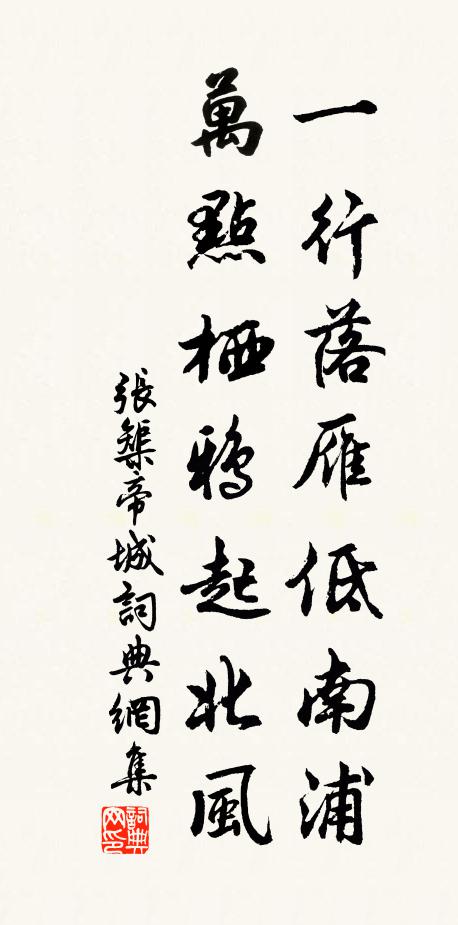 一行落雁低南浦
萬點栖鴉起北風
張榘帝城詞典網集
詞典網印